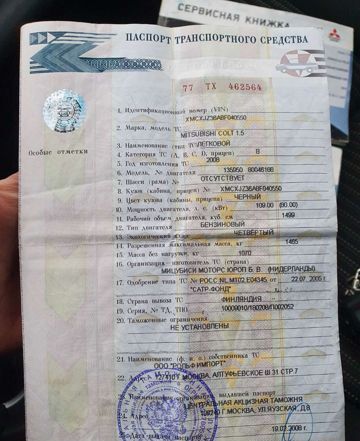 СЕРВИСНАЯ КНИЖКА
ПАСПОРТ ТРАНСПОРТНОГО СРЕДСТВА
77 ТХ 462564
1. Идентификационный номер (VIN)
XMCXJZ36ABF040550
2. Марка, модель ТС
MITSUBISHI COLT 1.5
3. Наименование (тип ТС) ЛЕГКОВОЙ
4. Категория ТС (A, B, C, D, прицеп) B
Особые отметки
5. Год изготовления ТС 2008
6. Модель, № двигателя 135950 80046188
7. Шасси (рама) № ОТСУТСТВУЕТ
8. Кузов (кабина, прицеп) № XMCXJZ36ABF040550
9. Цвет кузова (кабины, прицепа) ЧЕРНЫЙ
10. Мощность двигателя, л. с. (кВт) 109.00 (80.00)
11. Рабочий объем двигателя, куб. см 1499
12. Тип двигателя БЕНЗИНОВЫЙ
13. Экологический класс ЧЕТВЁРТЫЙ
14. Разрешенная максимальная масса, кг 1485
15. Масса без нагрузки, кг 1070
16. Организация - изготовитель ТС (страна)
МИЦУБИСИ МОТОРС ЮРОП Б. В. (НИДЕРЛАНДЫ)
17. Одобрение типа ТС № РОСС NL.МТ02.Е04345. от 22.07.2005 г.
"САТР-ФОНД"
18. Страна вывоза ТС ФИНЛЯНДИЯ
19. Серия, № ТД, ТПО
20. Таможенные ограничения
НЕ УСТАНОВЛЕНЫ
21. Наименование (ф. и. о.) собственника ТС
ООО "РОЛЬФ ИМПОРТ"
22. Адрес МОСКВА, АЛТУФЬЕВСКОЕ Ш 31 СТР.7
23. Наименование организации, выдавшей паспорт
ЦЕНТРАЛЬНАЯ АКЦИЗНАЯ ТАМОЖНЯ
24. Адрес Г МОСКВА, УЛ ЯУЗСКАЯ, Д 8
19.02.2008